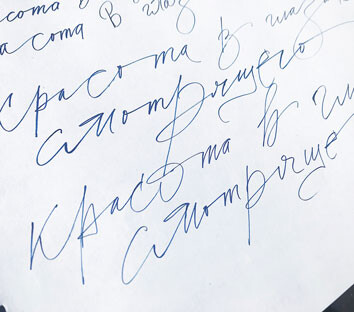 сота в
асота в глаз
Красота в глаза
смотрящего
Красота в гл
смотряще